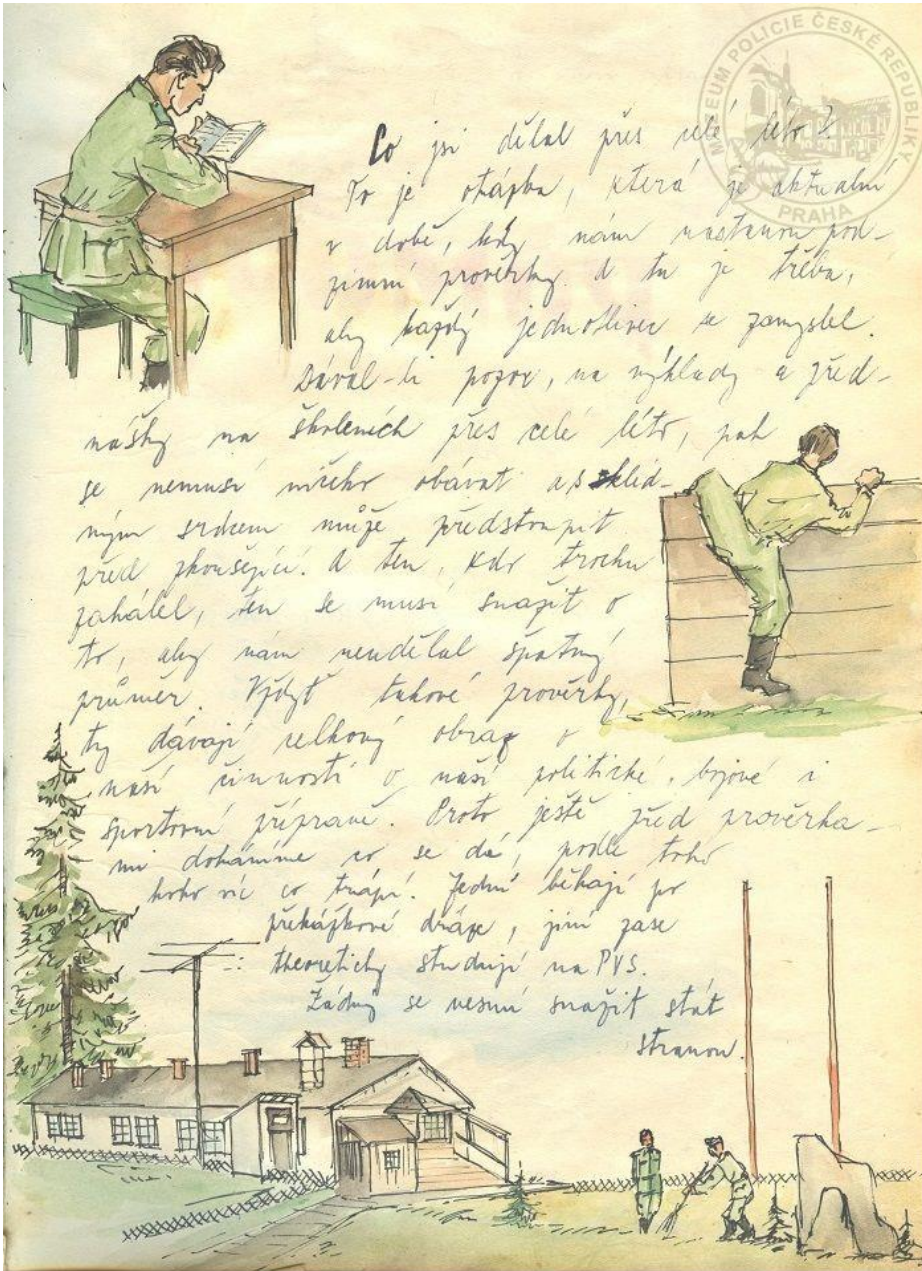 MUZEUM POLICIE ČESKÉ REPUBLIKY
PRAHA
Co jsi dělal přes celé léto?
To je otázka, která je aktualní
v době, kdy nám nastanou pod-
zimní prověrky. A tu je třeba,
aby každý jednotlivec se zamyslel.
Dával-li pozor, na výklady a před-
nášky na školeních přes celé léto, pak
se nemusí ničeho obávat a s klid-
ným srdcem může předstoupit
před zkoušející. A ten, kdo trochu
zahálel, ten se musí snažit o
to, aby nám neudělal špatný
průměr. Vždyť takové prověrky,
ty dávají celkový obraz o
naší činnosti o naší politické, bojové i
sportovní přípravě. Proto ještě před prověrka-
mi doháníme co se dá, podle toho
koho víc co trápí. Jedni běhají po
překážkové dráze, jiní zase
theoreticky studují na PVS.
Žádný se nesmí snažit stát
stranou.